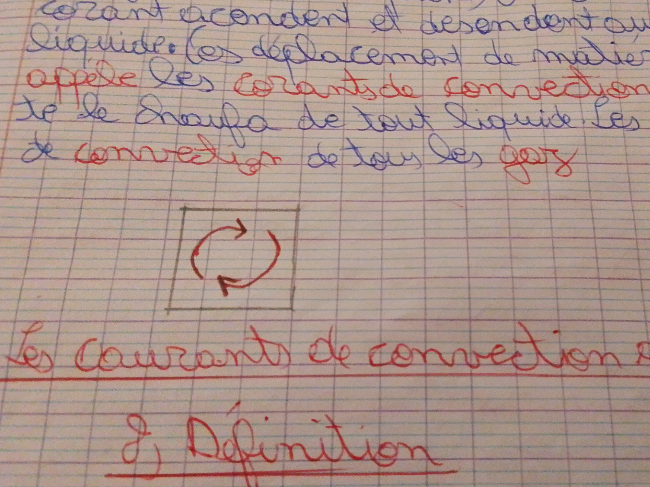 corant acendent et desendent au
liquide. Ces déplacement de matiè
appéle les corants de convection
te le de tout liquide. Les
de convection de tous les gaz
Les courants de convection
2, Définition